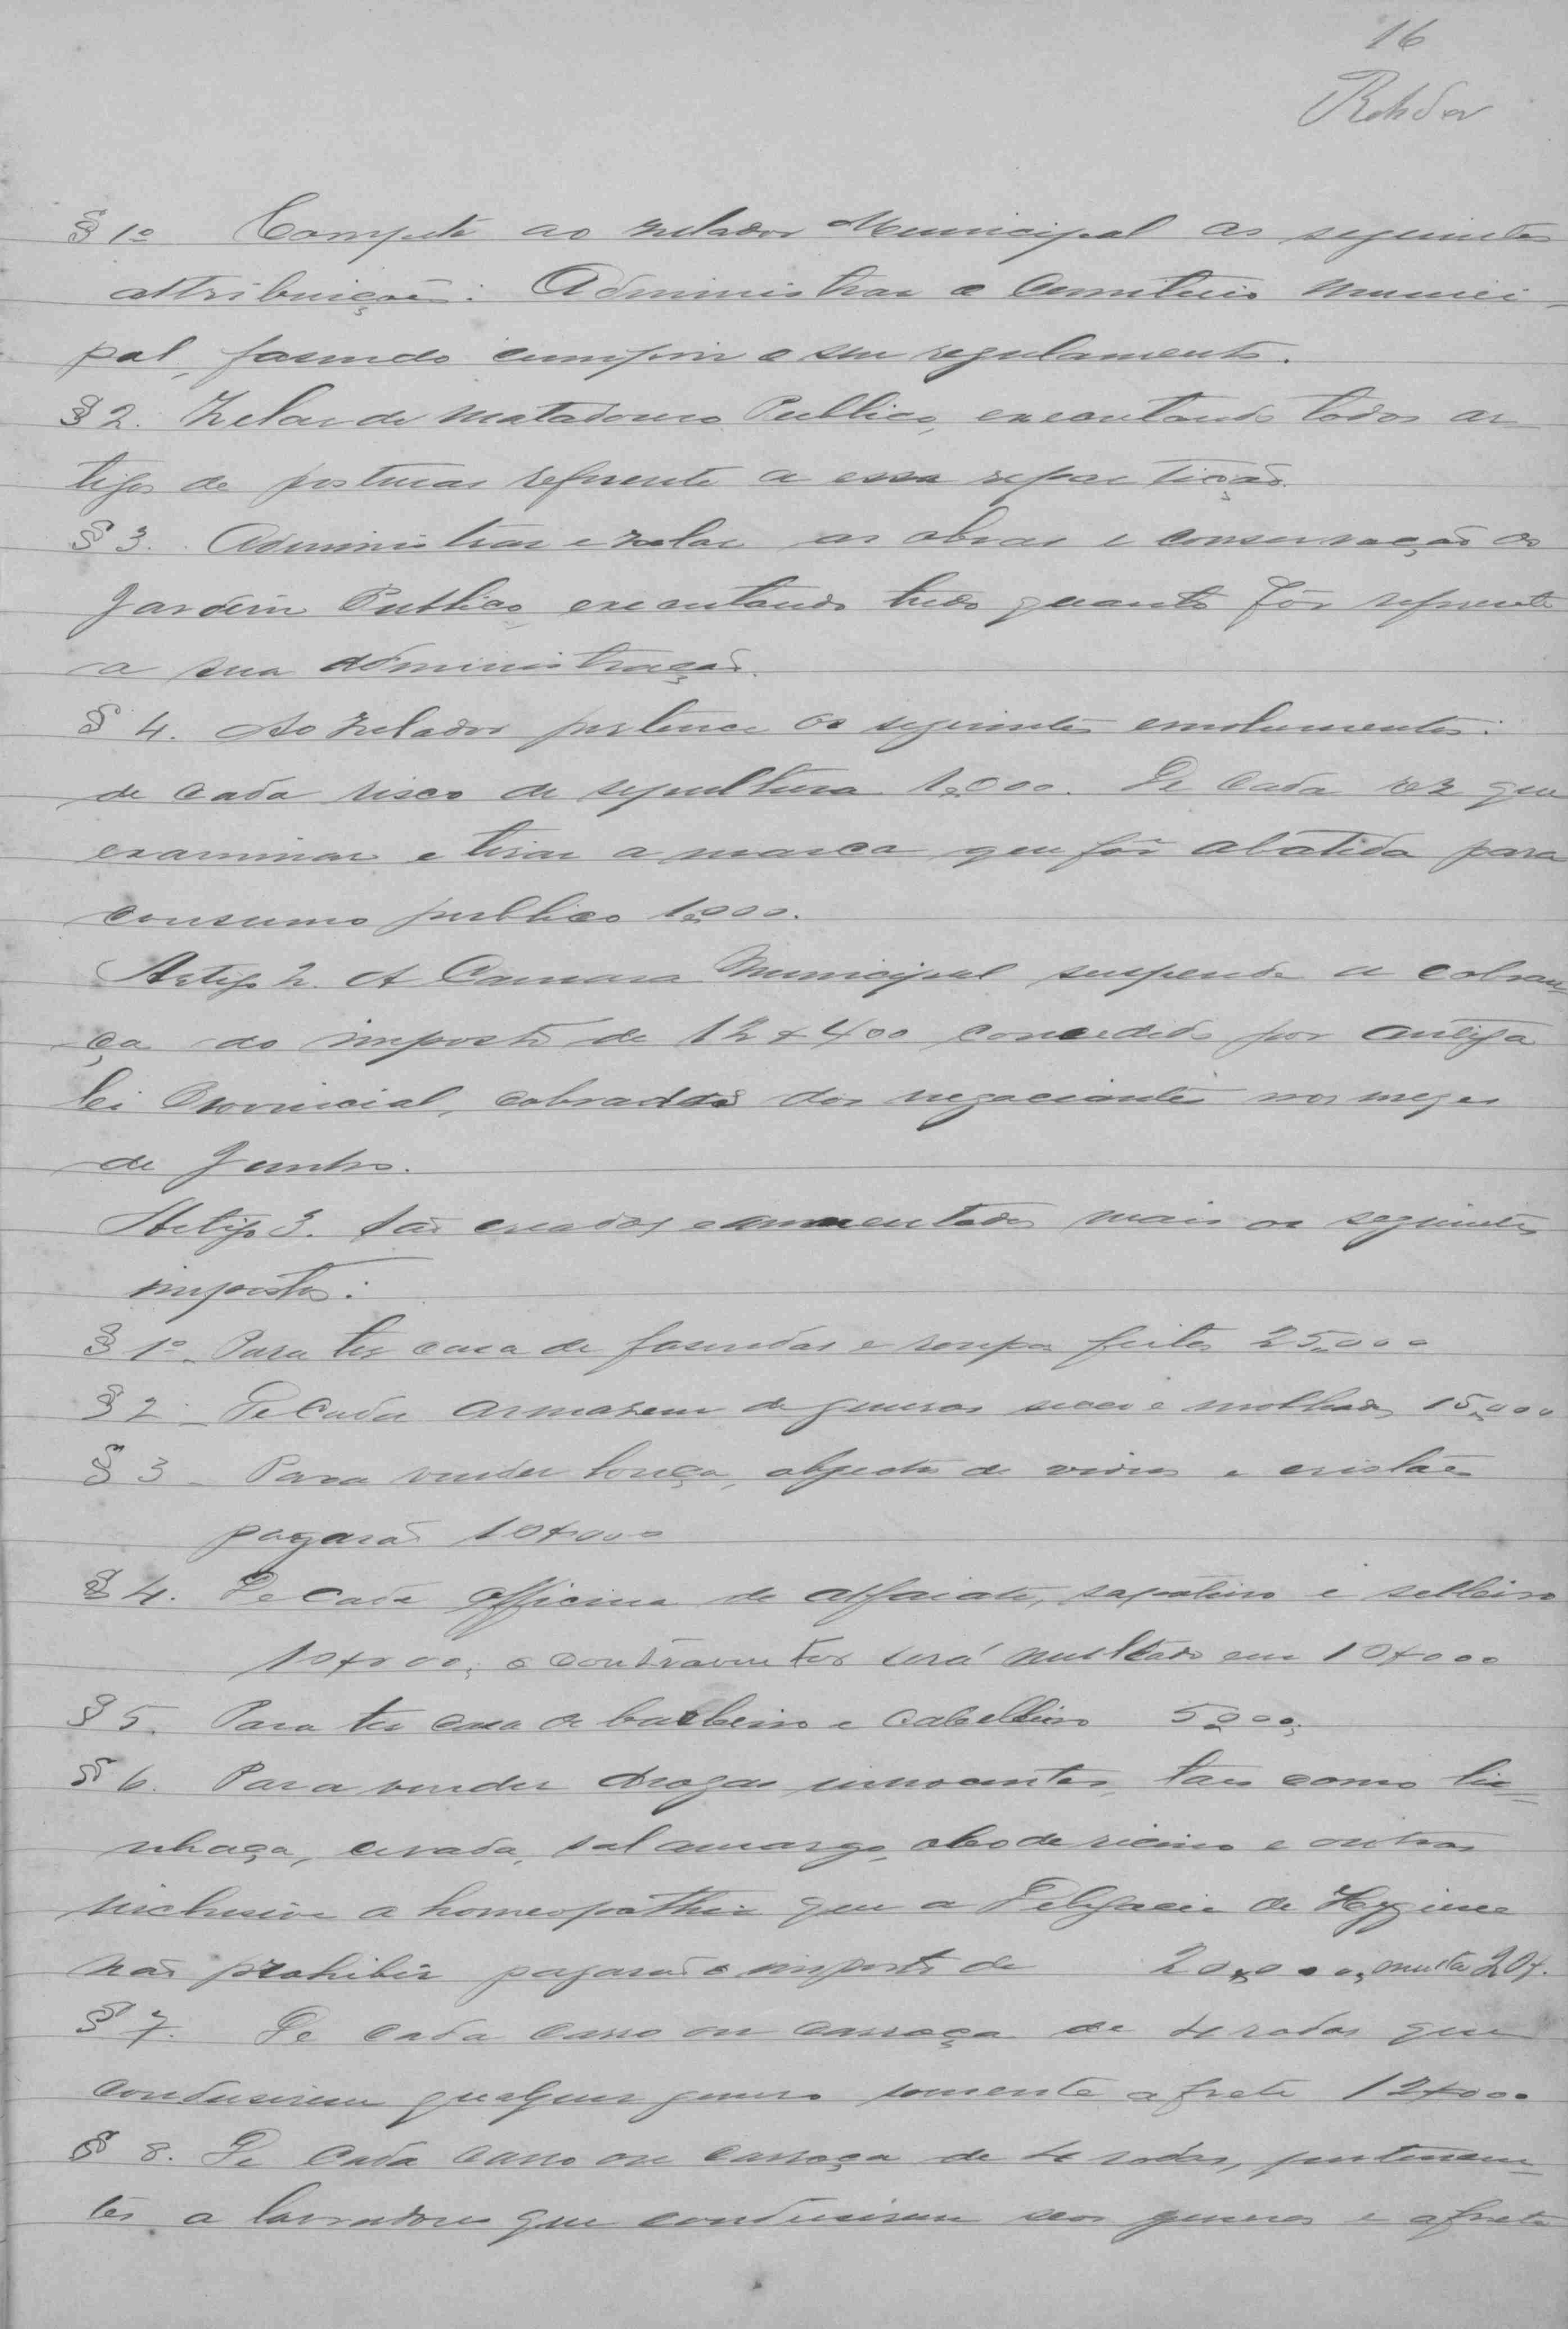 16
Rohder
§ 1º Compete ao zelador Municipal as seguintes
attribuições: Administrar o Cemiterio Munici-
pal, fasendo cumprir o seu regulamento.
§ 2. Zelar do Matadouro Publico, executando todos ar-
tigos de posturas referente a essa repartição.
§ 3. Administrar e zelar as obras e conservação do
Jardim Publico, executando tudo quanto fôr referente
a sua administração.
§ 4. Ao zelador pertence os seguintes emolumentos:
de cada risco de sepultura 1$000. De cada rez que
examinar e tirar a marca que fôr abatida para
consumo publico 1$000.
Artigo 2. A Camara Municipal suspende a cobran-
ça do imposto de 12$400 concedido por antiga
lei Provincial, cobrados dos negociantes nos mezes
de Junho.
Artigo 3. São creados e augmentados mais os seguintes
impostos:
§ 1º Para ter casa de fasendas e roupas feitas 25$000
§ 2 - De Cada armazem de generos seccos e molhados 15$000
§ 3 - Para vender louça, objectos de vidros e cristães
pagará 10$000
§ 4. De cada officina de alfaiate, sapateiro e selleiro
10$000; o contraventor será multado em 10$000
§ 5. Para ter casa de barbeiro e cabelleiro 5$000;
§ 6. Para vender drogas innocentes, taes como li-
nhaça, cevada, sal amargo, oleo de ricino e outras
inclusive a homeopathia que a Delegacia de Hygiene
não prohibir pagará o imposto de 20$000, multa 20$.
§ 7. De cada carro ou carroça de 4 rodas que
condusirem qualquer genero somente a frete 12$000
§ 8. De Cada carro ou carroça de 4 rodas, pertencen-
tes a lavradores que condusirem seos generos e a frete